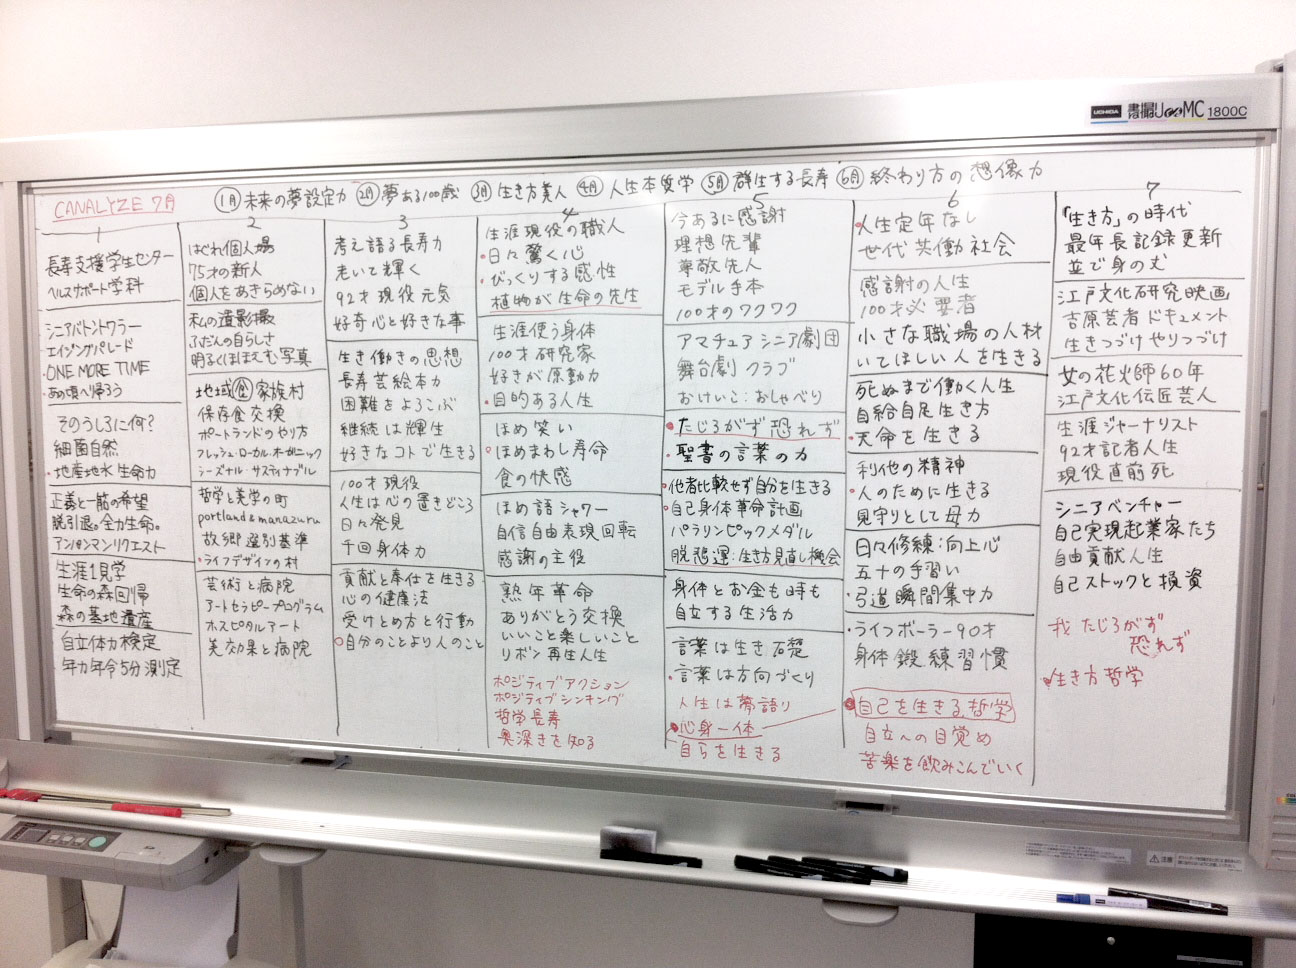 UCHIDA 書撮りくんMC 1800C
CANALYZE 7月
1月 未来の夢設定力 2月 夢ある100歳 3月 生き方美人 4月 人生本質学 5月 群生する長寿 6月 終わり方の想像力
1
長寿支援学生センター
ヘルスサポート学科
シニアバトントワラー
エイジングパレード
・ONE MORE TIME
・あの頃へ帰ろう
そのうしろに何?
細菌自然
・地産地水生命力
正義と一筋の希望
脱引退。全力生命。
アンパンマンリクエスト
生涯1見学
生命の森回帰
森の墓地遺産
自立体力検定
・年力年令5分測定
2
はぐれ個人場
75才の新人
個人をあきらめない
私の遺影撮
ふだんの自らしさ
明るくほほえむ写真
地域食家族村
保存食交換
ポートランドのやり方
フレッシュ・ローカル・オーガニック
シーズナル・サスティナブル
哲学と美学の町
portland & manazuru
故郷選別基準
・ライフデザインの村
芸術と病院
アートセラピープログラム
ホスピタルアート
美効果と病院
3
考え語る長寿力
老いて輝く
92才現役元気
好奇心と好きな事
生き働きの思想
長寿芸絵本力
困難をよろこぶ
継続は輝生
好きなコトで生きる
100才現役
人生は心の置きどころ
日々発見
千回身体力
貢献と奉仕を生きる
心の健康法
受けとめ方と行動
自分のことより人のこと
4
生涯現役の職人
・日々驚く心
・びっくりする感性
植物が生命の先生
生涯使う身体
100才研究家
好きが原動力
・目的ある人生
ほめ笑い
ほめまわし寿命
食の快感
ほめ語シャワー
自信自由表現回転
感謝の主役
熟年革命
ありがとう交換
いいこと楽しいこと
リボン再生人生
ポジティブアクション
ポジティブシンキング
哲学長寿
奥深きを知る
5
今あるに感謝
理想先輩
尊敬先人
モデル手本
100才のワクワク
アマチュアシニア劇団
舞台劇クラブ
おけいこ:おしゃべり
・たじろがず恐れず
・聖書の言葉の力
・他者比較せず自分を生きる
・自己身体革命計画
パラリンピックメダル
脱悲運:生き方見直し機会
身体とお金も時も
自立する生活力
言葉は生き礎
・言葉は方向づくり
人生は夢語り
・心身一体
自らを生きる
6
人生定年なし
世代共働社会
感謝の人生
100才必要者
小さな職場の人材
いてほしい人を生きる
死ぬまで働く人生
自給自足生き方
・天命を生きる
利他の精神
・人のために生きる
見守りとして母力
日々修練:向上心
五十の手習い
・弓道瞬間集中力
・ライフボーラー90才
身体鍛練習慣
・自己を生きる哲学
自立への目覚め
苦楽を飲みこんでいく
7
「生き方」の時代
最年長記録更新
並で身の丈
江戸文化研究映画
吉原芸者ドキュメント
生きつづけやりつづけ
女の花火師60年
江戸文化伝匠芸人
生涯ジャーナリスト
92才記者人生
現役直前死
シニアベンチャー
自己実現起業家たち
自由貢献人生
自己ストックと損資
我たじろがず
恐れず
・生き方哲学
注意